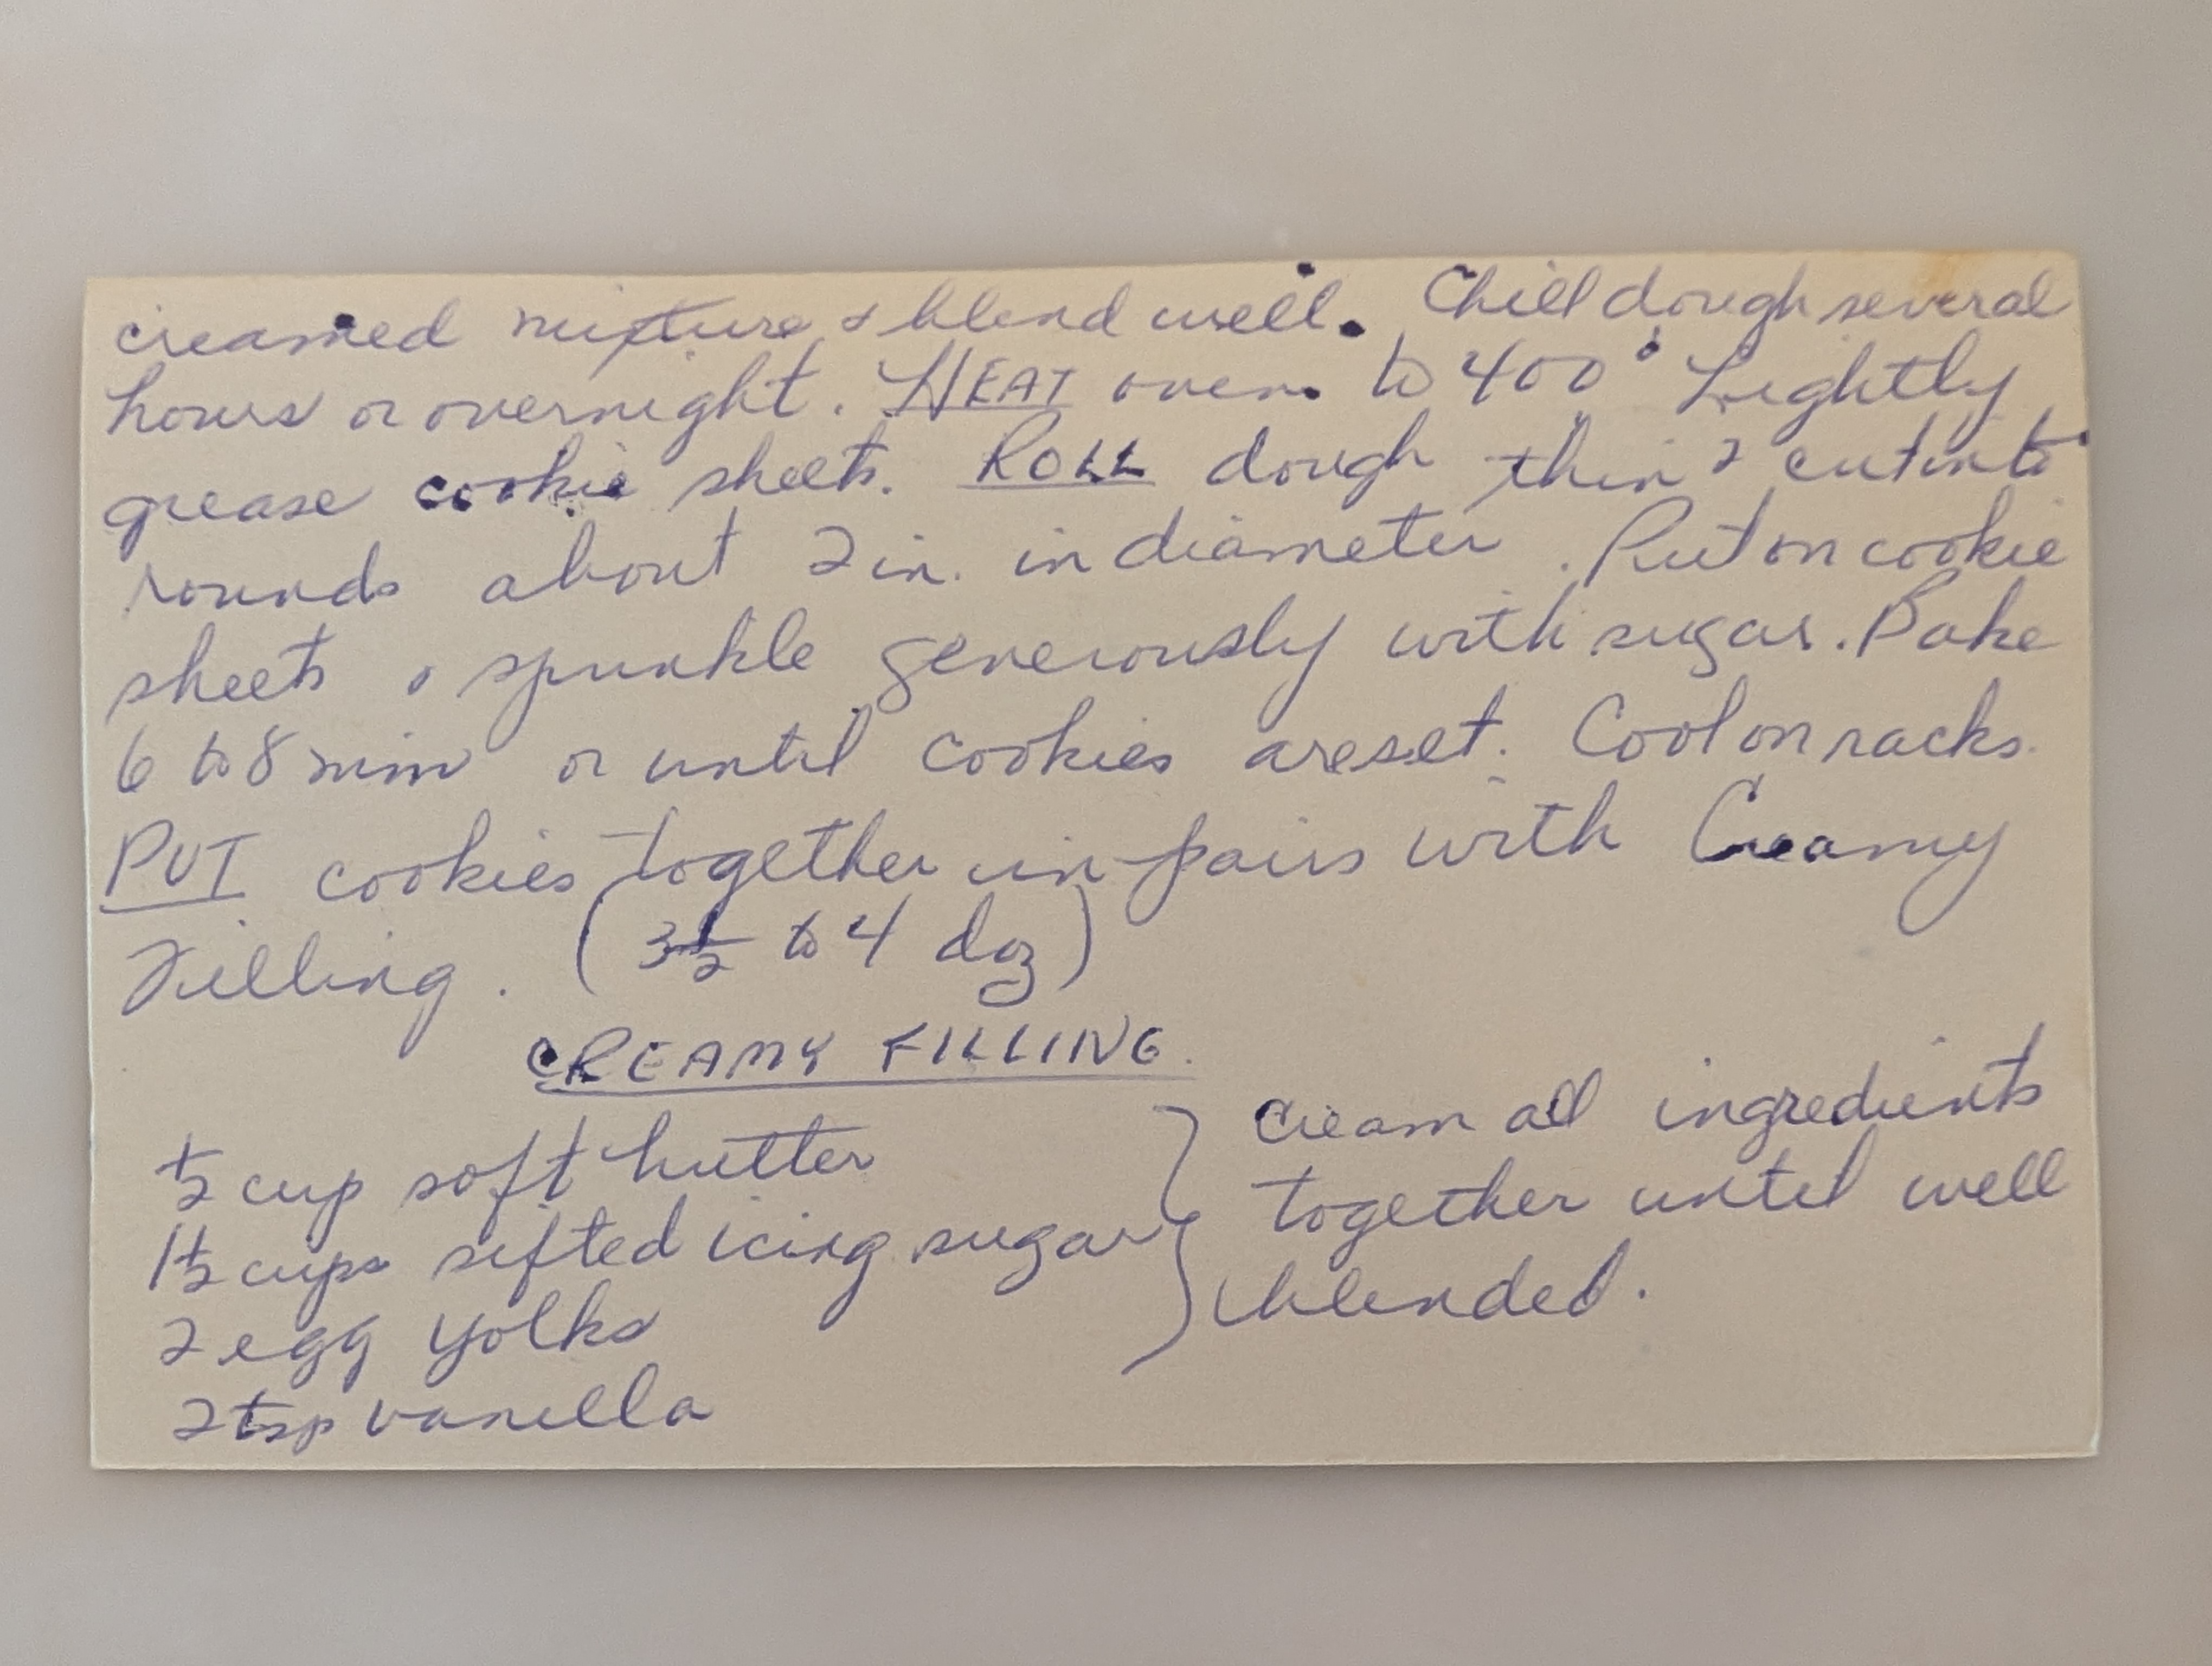 creamed mixture & blend well. Chill dough several
hours or overnight. HEAT oven to 400° Lightly
grease cookie sheets. ROLL dough thin & cut into
rounds about 2 in. in diameter. Put on cookie
sheets & sprinkle generously with sugar. Bake
6 to 8 min or until cookies are set. Cool on racks.
PUT cookies together in pairs with Creamy
Filling. (3½ to 4 doz)
CREAMY FILLING.
½ cup soft butter
1½ cups sifted icing sugar
2 egg yolks
2 tsp vanilla
} cream all ingredients
together until well
blended.